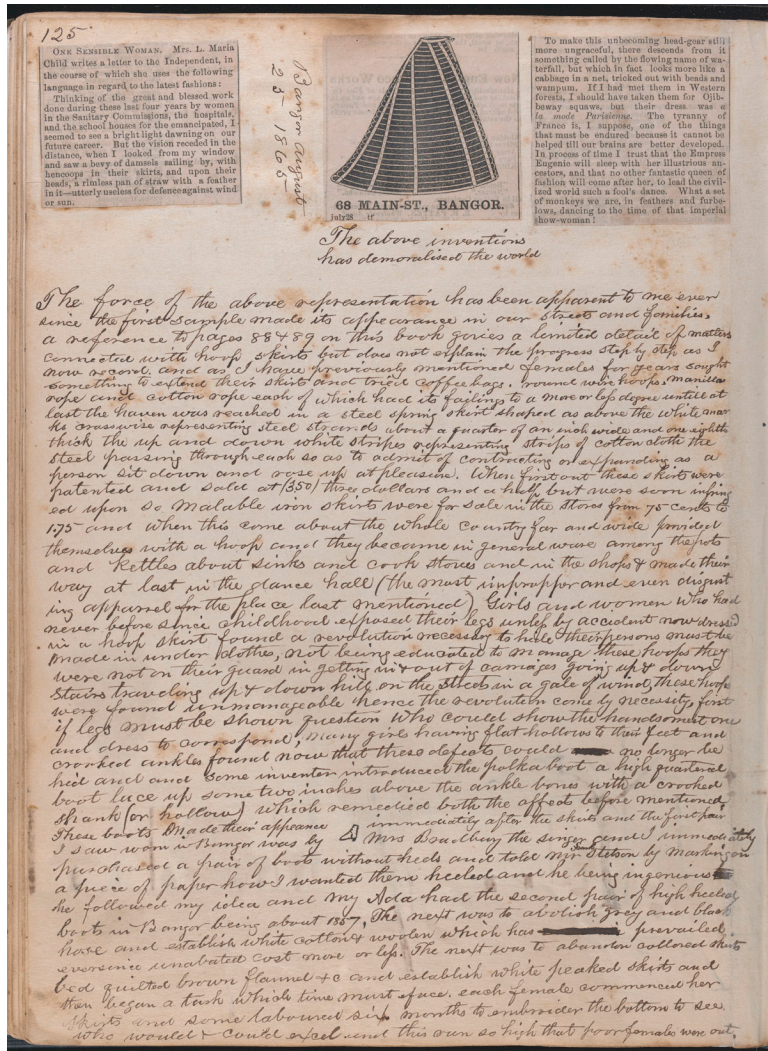 125
ONE SENSIBLE WOMAN. Mrs. L. Maria
Child writes a letter to the Independent, in
the course of which she uses the following
language in regard to the latest fashions:
Thinking of the great and blessed work
done during these last four years by women
in the Sanitary Commissions, the hospitals,
and the school houses for the emancipated, I
seemed to see a bright light dawning on our
future career. But the vision receded in the
distance, when I looked from my window
and saw a bevy of damsels sailing by, with
hencoops in their skirts, and upon their
heads, a rimless pan of straw with a feather
in it—utterly useless for defence against wind
or sun.
Bangor August
25 1865
68 MAIN-ST., BANGOR.
july28 tf
To make this unbecoming head-gear still
more ungraceful, there descends from it
something called by the flowing name of wa-
terfall, but which in fact looks more like a
cabbage in a net, tricked out with beads and
wampum. If I had met them in Western
forests, I should have taken them for Ojib-
beway squaws, but their dress was a
la mode Parisienne. The tyranny of
France is, I suppose, one of the things
that must be endured because it cannot be
helped till our brains are better developed.
In process of time I trust that the Empress
Eugenie will sleep with her illustrious an-
cestors, and that no other fantastic queen of
fashion will come after her, to lead the civil-
ized world such a fool's dance. What a set
of monkeys we are, in feathers and furbe-
lows, dancing to the time of that imperial
show-woman!
The above inventions
has demoralised the world
The force of the above representation has been apparent to me ever
since the first sample made its appearance in our streets and families,
a reference to pages 88 & 89 on this book gives a limited detail of matters
connected with hoop skirts but does not explain the progress step by step as I
now record. and as I have previously mentioned females for years sought
something to extend their skirts and tried coffee bags. round wire hoops. manilla
rope and cotton rope each of which had its failings to a more or less degree untill at
last the haven was reached in a steel spring skirt shaped as above the white mar
ks crosswise representing steel strands about a quarter of an inch wide and one eighth
thick the up and down white stripes representing strips of cotton cloth the
steel passing through each so as to admit of contracting or expanding as a
person sit down and rose up at pleasure. When first out these skirts were
patented and sold at (3.50) three dollars and a half, but were soon infring
ed upon so Malable iron skirts were for sale in the stores from 75 cents to
1.75 and when this come about the whole country far and wide provided
themselves with a hoop and they became in general ware among the pots
and kettles about sinks and cook stoves and in the shops & made their
way at last in the dance hall (the most impropper and even disgust
ing apparrel for the place last mentioned) Girls and women who had
never before since childhood exposed their legs unless by accident now dressed
in a hoop skirt found a revolution necessary to hide their persons must be
made in under clothes, not being educated to manage these hoops they
were not on their guard in getting in & out of carriages going up & down
stairs traveling up & down hill, on the streets in a gale of wind, these hoops
were found unmanageable hence the revolution come by necessity, first
if legs must be shown question who could show the handsomest one
and dress to correspond, many girls having flat hollows to their feet and
crooked ankles found now that these defects could no longer be
hid and and some inventer introduced the polka boot a high quartered
boot lace up some two inches above the ankle bones with a crooked
shank (or hollow) which remedied both the affects before mentioned,
These boots Made their appeance immediately after the skirts and the first pair
I saw worn in Bangor was by Mrs Bradbury the singer and I immediately
purchased a pair of boots without heels and told Mr Stetson by marking on
a piece of paper how I wanted them heeled and he being ingenious
he followed my idea and my Ada had the second pair of high heeled
boots in Bangor being about 1857, The next was to abolish grey and black
hose and establish white cotton & woolen which has prevailed
eversince unabated cost more or less. The next was to abandon collored skirts
bed quilted brown flannel &c and establish white peaked skirts and
then began a task which time must eface. each female commenced her
skirts and some laboured six months to embroider the bottom to see
who would & could excel and this run so high that poor females wore out,